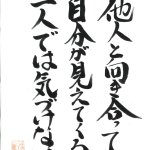 他人と向き合って
自分が見えてくる
一人では気づけな